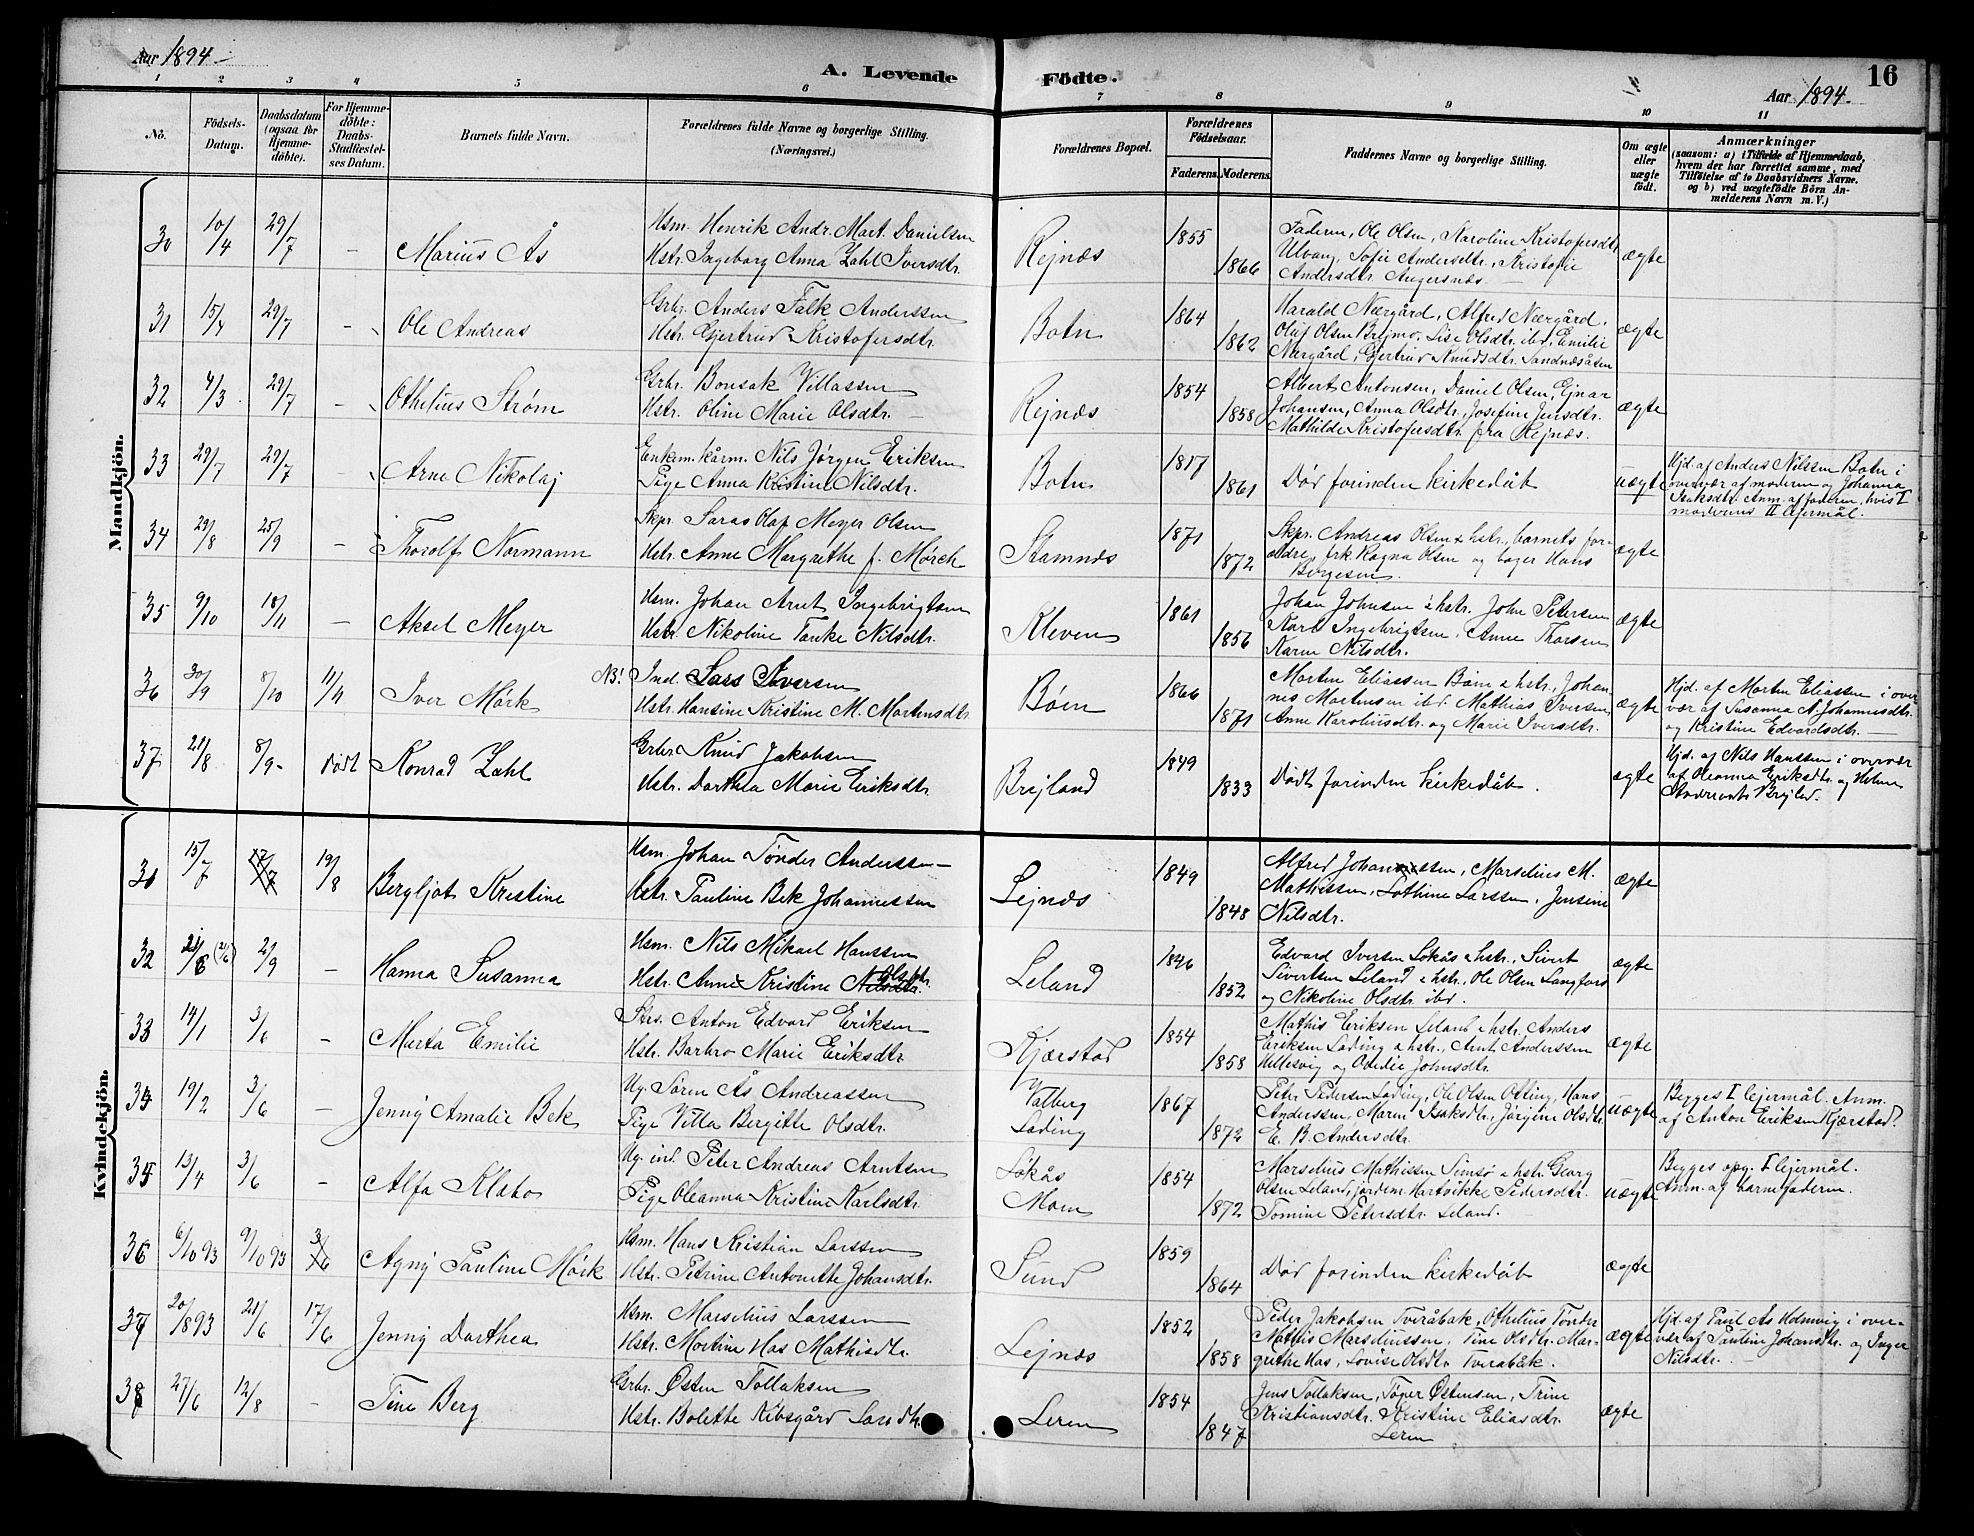 Aar 1894.
A. Levende Födte.
Aar 1894.
16
1 2 3 4 5 6 7 8 9 10 11
No.
Födsels-Datum.
Daabsdatum (ogsaa for Hjemmedöbte).
For Hjemmedöbte: Daabs-Stadfæstelses Datum.
Barnets fulde Navn.
Forældrenes fulde Navne og borgerlige Stilling.
(Næringsvei.)
Forældrenes Bopæl.
Forældrenes Födselsaar.
Faderens. Moderens.
Faddernes Navne og borgerlige Stilling.
Om ægte eller uægte födt.
Anmærkninger
(saasom: a) i Tilfælde af Hjemmedaab, hvem der har forrettet samme, med Tilföielse af to Daabsvidners Navne. og b) ved uægtefödte Börn Anmelderens Navn m. V.)
Mandkjön.
30 10/4 29/7 - Marius Ås
Hsm. Henrik Andr. Mart. Danielsen
Hstr. Ingeborg Anna Zahl Iversdtr.
Rejnæs 1855 1866
Faderen, Ole Olsen, Karoline Kristofersdtr
Ulvang, Sofie Andersdtr., Kristofie
Andersdtr. Angersnæs.
ægte
31 15/4 29/7 - Ole Andreas
Grbr. Anders Falk Anderssen
Hstr. Gjertrud Kristofersdtr.
Botn 1864 1862
Harald Nærgård, Alfred Nærgård,
Oluf Olsen Brejmo, Lise Olsdtr. ibd, Emilie
Nærgård, Gjertrud Knudsdtr. Sandnæsåsen
ægte
32 4/3 29/7 - Othelius Strøm
Grbr. Bonsak Villassen
Hstr. Oline Marie Olsdtr.
Rejnæs 1854 1858
Albert Antonsen, Daniel Olsen, Ejnar
Johansen, Anna Olsdtr., Josefine Jensdtr.
Mathilde Kristofersdtr. fra Rejnæs.
ægte
33 29/7 29/7 - Arne Nikolaj
Enkem. kårm. Nils Jørgen Eriksen
Pige Anna Kristine Nilsdtr.
Botn 1817 1861
Død forinden kirkedåb
uægte
Hjd. af Anders Nilssen Botn i
overvær af moderen og Johanna
Isaksdtr. Anm. af faderen, hvis I
moderens II lejermål.
34 29/8 25/9 - Thorolf Normann
Skpr. Saras Olaf Meyer Olsen
Hstr. Anne Margrethe f. Mørch
Stamnes 1871 1872
Skpr. Andreas Olsen & hstr., barnets for-
ældre, frk Ragna Olsen og bager Hans
Børgesen.
ægte
35 9/10 18/11 - Aksel Meyer
Hsm. Johan Arnt Ingebrigtsen
Hstr. Nikoline Tanke Nilsdtr.
Kleven 1861 1856
Johan Johnsen & hstr. John Petersen
Karl Ingebrigtsen, Anne Thorsen
Karen Nilsdtr.
ægte
36 30/9 8/10 11/11 Iver Mørk
NB! Ind. Lars Iversen
Hstr. Hansine Kristine M. Mortensdtr
Bøen 1866 1871
Morten Eliassen Bøen & hstr. Johan-
nes Mortensen ibd. Mathias Iversen,
Anne Karoliusdtr. og Marie Iversdtr.
ægte
Hjd. af Morten Eliassen i over
vær af Susanna N. Johannesdtr.
og Kristine Edvardsdtr.
37 21/8 8/9 - Død Konrad Zahl
Grbr. Knud Jakobsen
Hstr. Dorthea Marie Eriksdtr.
Brejland 1849 1833
Død forinden kirkedåb.
ægte
Hjd. af Nils Hanssen i overvær
af Oleanna Eriksdtr. og Helene
Brejld.
Kvindekjön.
31 15/7 17/7 19/8 Bergljot Kristine
Hsm Johan Tønder Anderssen
Hstr. Pauline Bek Johannessen
Lejnæs 1849 1848
Alfred Johannessen, Marselius M.
Mathissen, Lothine Larssen, Jensine
Nilsdtr.
ægte
32 21/8 (21/6) 2/9 - Hanna Susanna
Hsm. Nils Mikael Hanssen
Hstr. Anne Kristine Nilsdtr. Olsdtr.
Leland 1846 1852
Edvard Iversen Løkås & hstr., Sivert
Sivertsen Leland & hstr., Ole Olsen Langfjord
og Nikoline Olsdtr ibd.
ægte
33 14/1 3/6 - Marta Emilie
Strs. Anton Edvard Eriksen
Hstr. Barbro Marie Eriksdtr.
Kjærstad 1854 1858
Mathis Eriksen Leland & hstr. Anders
Eriksen Lading & hstr., Arnt Anderssen
Hellesvig og Odelie Johnsdtr.
ægte
34 19/2 3/6 - Jenny Amalie Bek
Ug. Søren Ås Andreassen
Pige Villa Bergitte Olsdtr.
Valberg
Lading 1867 1872
Peter Pedersen Lading, Ole Olsen Olting, Hans
Anderssen, Maren Isaksdtr., Jørgine Olsdtr.
E. B. Andersdtr.
uægte
Begges I lejermål. Anm.
af Anton Eriksen Kjærstad.
35 13/4 3/6 - Alfa Klabo
Ug. ind. Peter Andreas Arntsen
Pige Oleanna Kristine Karlsdtr.
Løkås
Moen 1854 1872
Marselius Mathissen Simsø & hstr. Georg
Olsen Leland, jordem. Hartvikke Pedersdtr.
Tomine Petersdtr. Leland.
uægte
Begges opg. I lejermål.
Anm. af barnefaderen.
36 6/10 93 9/10 93 3/6 Agny Pauline Mørk
Hsm. Hans Kristian Larssen
Hstr. Petrine Antonette Johansdtr.
Sund 1859 1864
Død forinden kirkedåb
ægte
37 20/8 93 21/6 17/6 Jenny Dorthea
Hsm. Marselius Larssen
Hstr. Martine Has Mathisdtr.
Lejnæs 1852 1858
Peder Jakobsen Tveråbak, Othelius Tønder
Mathis Marseliussen, Tine Olsdtr. Mar-
grethe Has, Lovise Olsdtr Tveråbak.
ægte
Hjd. af Paul As Helmvig i over-
vær af Pauline Johansdtr. og Inger
Nilsdtr.
38 27/6 12/8 - Tine Berg
Grbr. Østen Tollaksen
Hstr. Bolette Nibsgård Larsdtr
Leren 1854 1847
Jens Tollaksen, Tøger Østensen, Trine
Kristiansdtr. Kristine Eliasdtr.
Leren
ægte